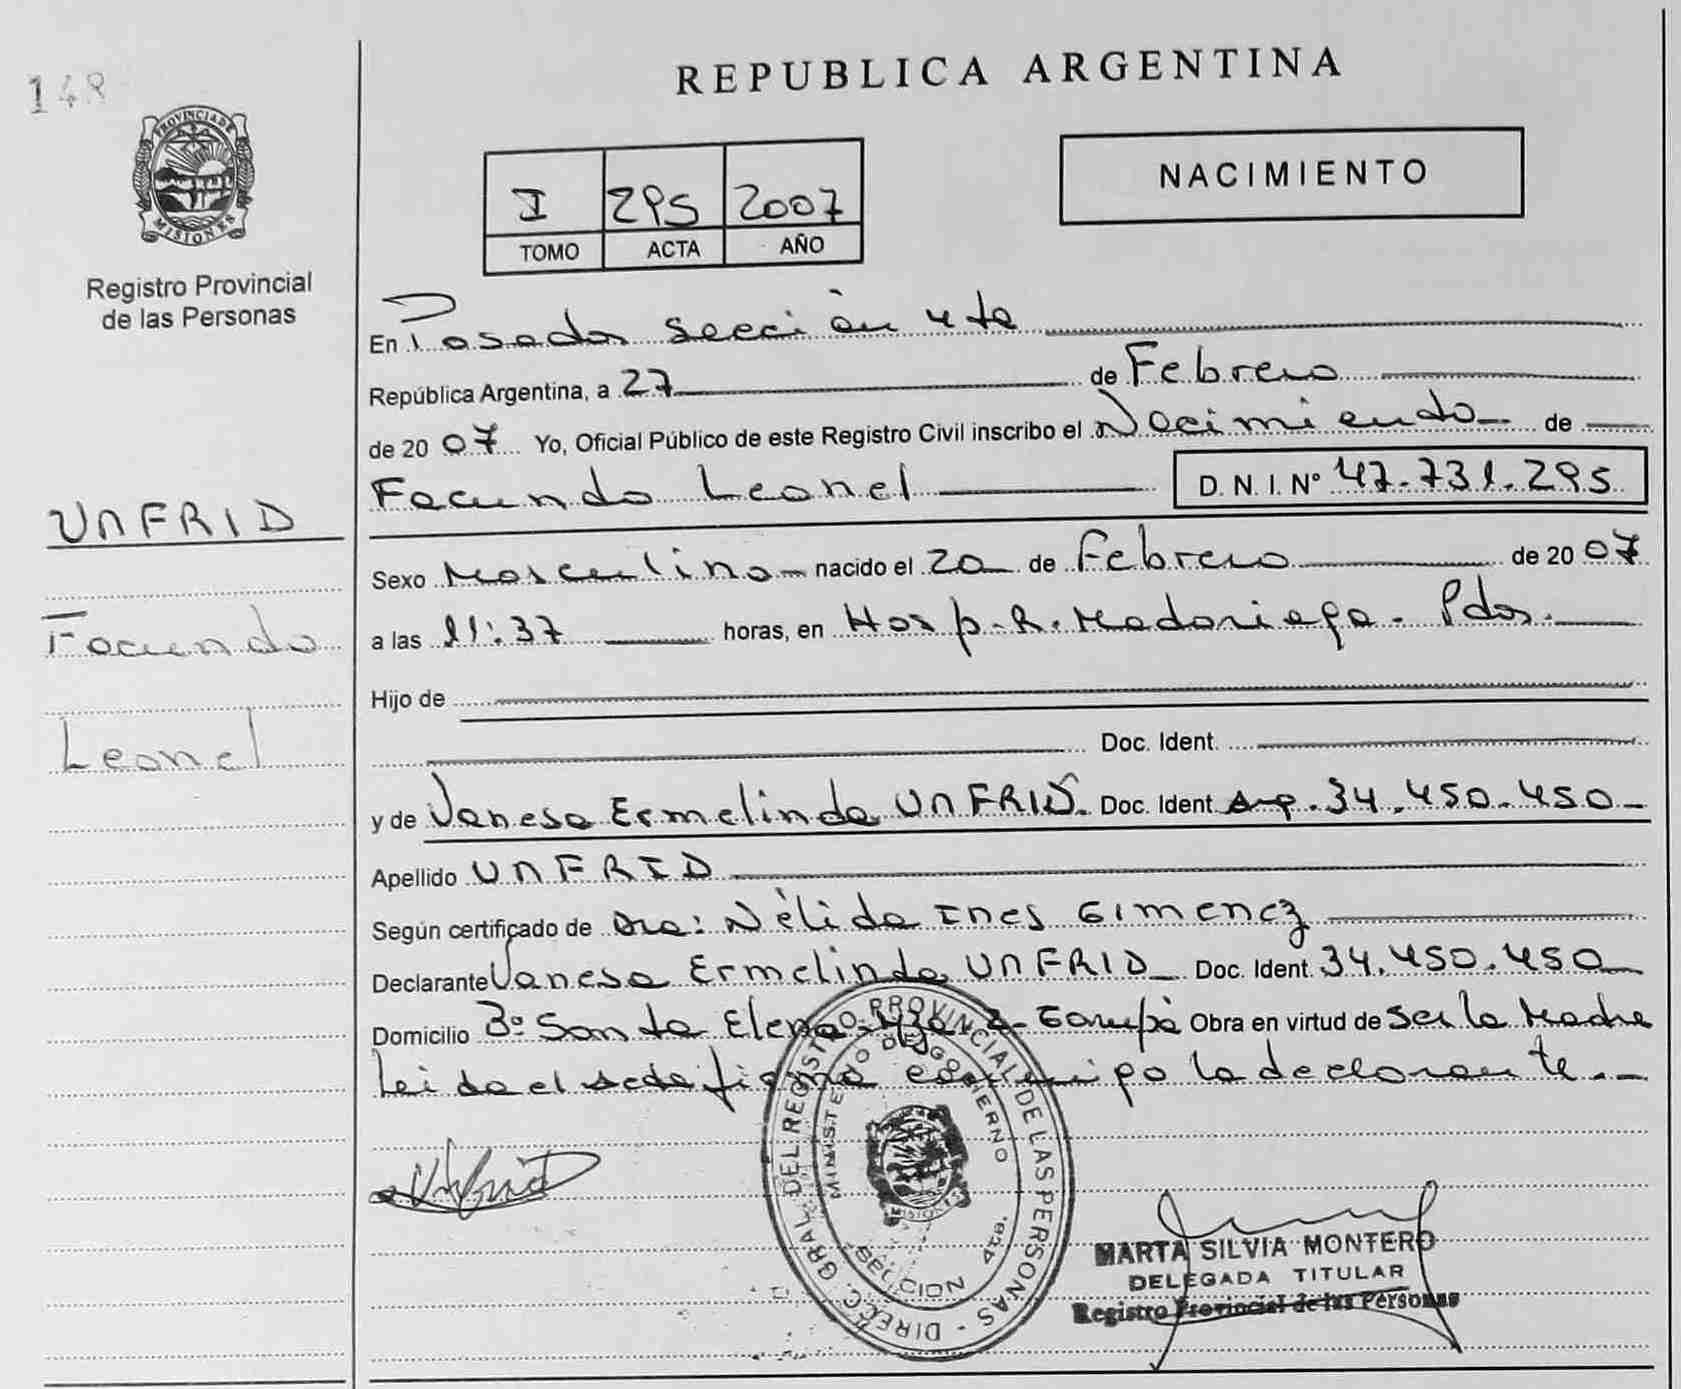 148
REPUBLICA ARGENTINA
PROVINCIA DE
MISIONES
Registro Provincial
de las Personas
I 295 2007
TOMO ACTA AÑO
NACIMIENTO
En Posadas sección 4ta
República Argentina, a 27 de Febrero
de 2007 Yo, Oficial Público de este Registro Civil inscribo el Nacimiento de
Facundo Leonel D. N. I. Nº 47.731.295
UNFRID
Facundo
Leonel
Sexo Masculino nacido el 20 de Febrero de 2007
a las 11:37 horas, en Hosp. R. Madariaga. Pdas.
Hijo de
Doc. Ident.
y de Vanesa Ermelinda UNFRID. Doc. Ident Arg. 34.450.450
Apellido UNFRID
Según certificado de Dra: Nélida Ines GIMENEZ
Declarante Vanesa Ermelinda UNFRID Doc. Ident. 34.450.450
Domicilio Bº Santa Elena Garupá Obra en virtud de ser la Madre
Leida el acta firma conmigo la declarante.
DIRECC. GRAL. DEL REGISTRO PROVINCIAL DE LAS PERSONAS
MINISTERIO DE GOBIERNO
MISIONES
SECCION 4ta.
MARTA SILVIA MONTERO
DELEGADA TITULAR
Registro Provincial de las Personas